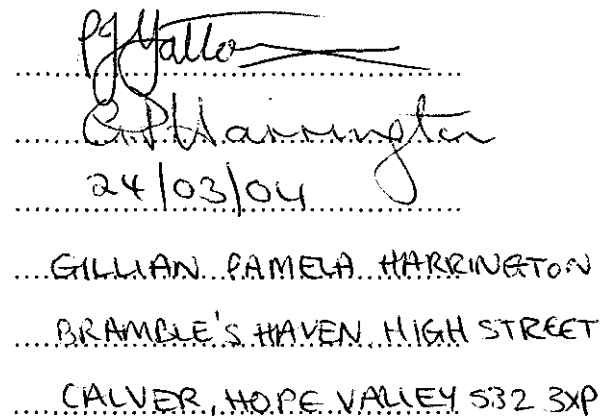 PJ Yallo
G.P. Harrington
24/03/04
GILLIAN PAMELA HARRINGTON
BRAMBLE'S HAVEN HIGH STREET
CALVER, HOPE VALLEY S32 3XP